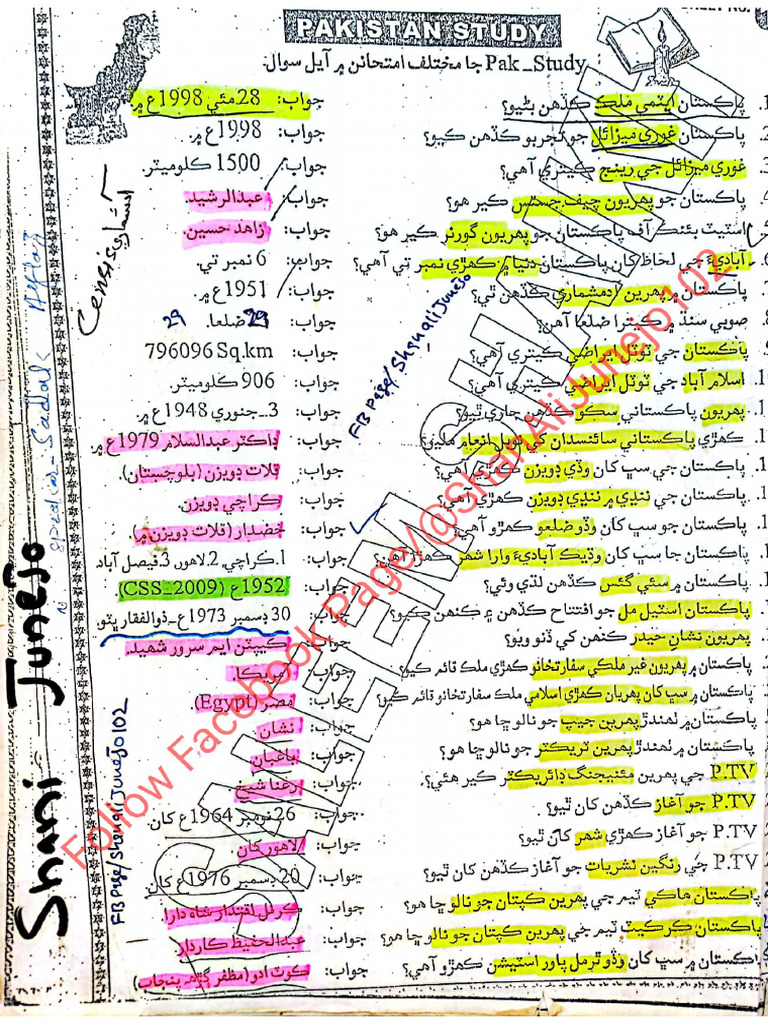 PAKISTAN STUDY
Pak_Study جا مختلف امتحانن ۾ آيل سوال:
پاڪستان ايٽمي ملڪ ڪڏهن بڻيو؟ جواب: 28 مئي 1998ع ۾
پاڪستان غوري ميزائل جو تجربو ڪڏهن ڪيو؟ جواب: 1998ع ۾.
غوري ميزائل جي رينج ڪيتري آهي؟ جواب: 1500 ڪلوميٽر.
پاڪستان جو پهريون چيف جسٽس ڪير هو؟ جواب: عبدالرشيد.
اسٽيٽ بئنڪ آف پاڪستان جو پهريون گورنر ڪير هو؟ جواب: زاهد حسين.
آباديءَ جي لحاظ کان پاڪستان دنيا ۾ ڪهڙي نمبر تي آهي؟ جواب: 6 نمبر تي.
پاڪستان ۾ پهرين آدمشماري ڪڏهن ٿي؟ جواب: 1951ع ۾.
صوبي سنڌ ۾ ڪيترا ضلعا آهن؟ جواب: 29 ضلعا. 29
پاڪستان جي ٽوٽل ايراضي ڪيتري آهي؟ جواب: 796096 Sq.km
اسلام آباد جي ٽوٽل ايراضي ڪيتري آهي؟ جواب: 906 ڪلوميٽر.
پهريون پاڪستاني سڪو ڪڏهن جاري ٿيو؟ جواب: 3_جنوري 1948ع ۾.
ڪهڙي پاڪستاني سائنسدان کي نوبل انعام مليو؟ جواب: ڊاڪٽر عبدالسلام 1979ع ۾
پاڪستان جي سڀ کان وڏي ڊويزن ڪهڙي آهي؟ جواب: قلات ڊويزن (بلوچستان).
پاڪستان جي ننڍي ۾ ننڍي ڊويزن ڪهڙي آهي؟ جواب: ڪراچي ڊويزن.
پاڪستان جو سڀ کان وڏو ضلعو ڪهڙو آهي؟ جواب: خضدار (قلات ڊويزن ۾)
پاڪستان جا سڀ کان وڌيڪ آباديءَ وارا شهر ڪهڙا آهن؟ جواب: 1.ڪراچي، 2.لاهور، 3.فيصل آباد
پاڪستان ۾ سئي گئس ڪڏهن لڌي وئي؟ جواب: 1952ع (CSS_2009)
پاڪستان اسٽيل مل جو افتتاح ڪڏهن ۽ ڪنهن ڪيو؟ جواب: 30 ڊسمبر 1973ع_ذوالفقار ڀٽو
پهريون نشان حيدر ڪنهن کي ڏنو ويو؟ جواب: ڪيپٽن ايم سرور شهيد.
پاڪستان ۾ پهريون غير ملڪي سفارتخانو ڪهڙي ملڪ قائم ڪيو؟ جواب: آمريڪا.
پاڪستان ۾ سڀ کان پهريان ڪهڙي اسلامي ملڪ سفارتخانو قائم ڪيو؟ جواب: مصر (Egypt).
پاڪستان ۾ ٺهندڙ پهرين جيپ جو نالو ڇا هو؟ جواب: نشان
پاڪستان ۾ ٺهندڙ پهرين ٽريڪٽر جو نالو ڇا هو؟ جواب: باغبان
P.TV جي پهرين مئنيجنگ ڊائريڪٽر ڪير هئي؟ جواب: رعنا شيخ
P.TV جو آغاز ڪڏهن کان ٿيو؟ جواب: 26 نومبر 1964ع کان.
P.TV جو آغاز ڪهڙي شهر کان ٿيو؟ جواب: لاهور کان
P.TV جي رنگين نشريات جو آغاز ڪڏهن کان ٿيو؟ جواب: 20 ڊسمبر 1976ع کان
پاڪستان هاڪي ٽيم جي پهرين ڪپتان جو نالو ڇا هو؟ جواب: ڪرنل اقتدار شاه دارا
پاڪستان ڪرڪيٽ ٽيم جي پهرين ڪپتان جو نالو ڇا هو؟ جواب: عبدالحفيظ ڪاردار
پاڪستان ۾ سڀ کان وڏو ٿرمل پاور اسٽيشن ڪهڙو آهي؟ جواب: ڪوٽ ادو (مظفر ڳڙھ پنجاب)
Shani Junejo
FB Page/ShanaliJunejo102
FB Page/ShanaliJunejo
Follow Facebook Page/@ShanAliJunejo102